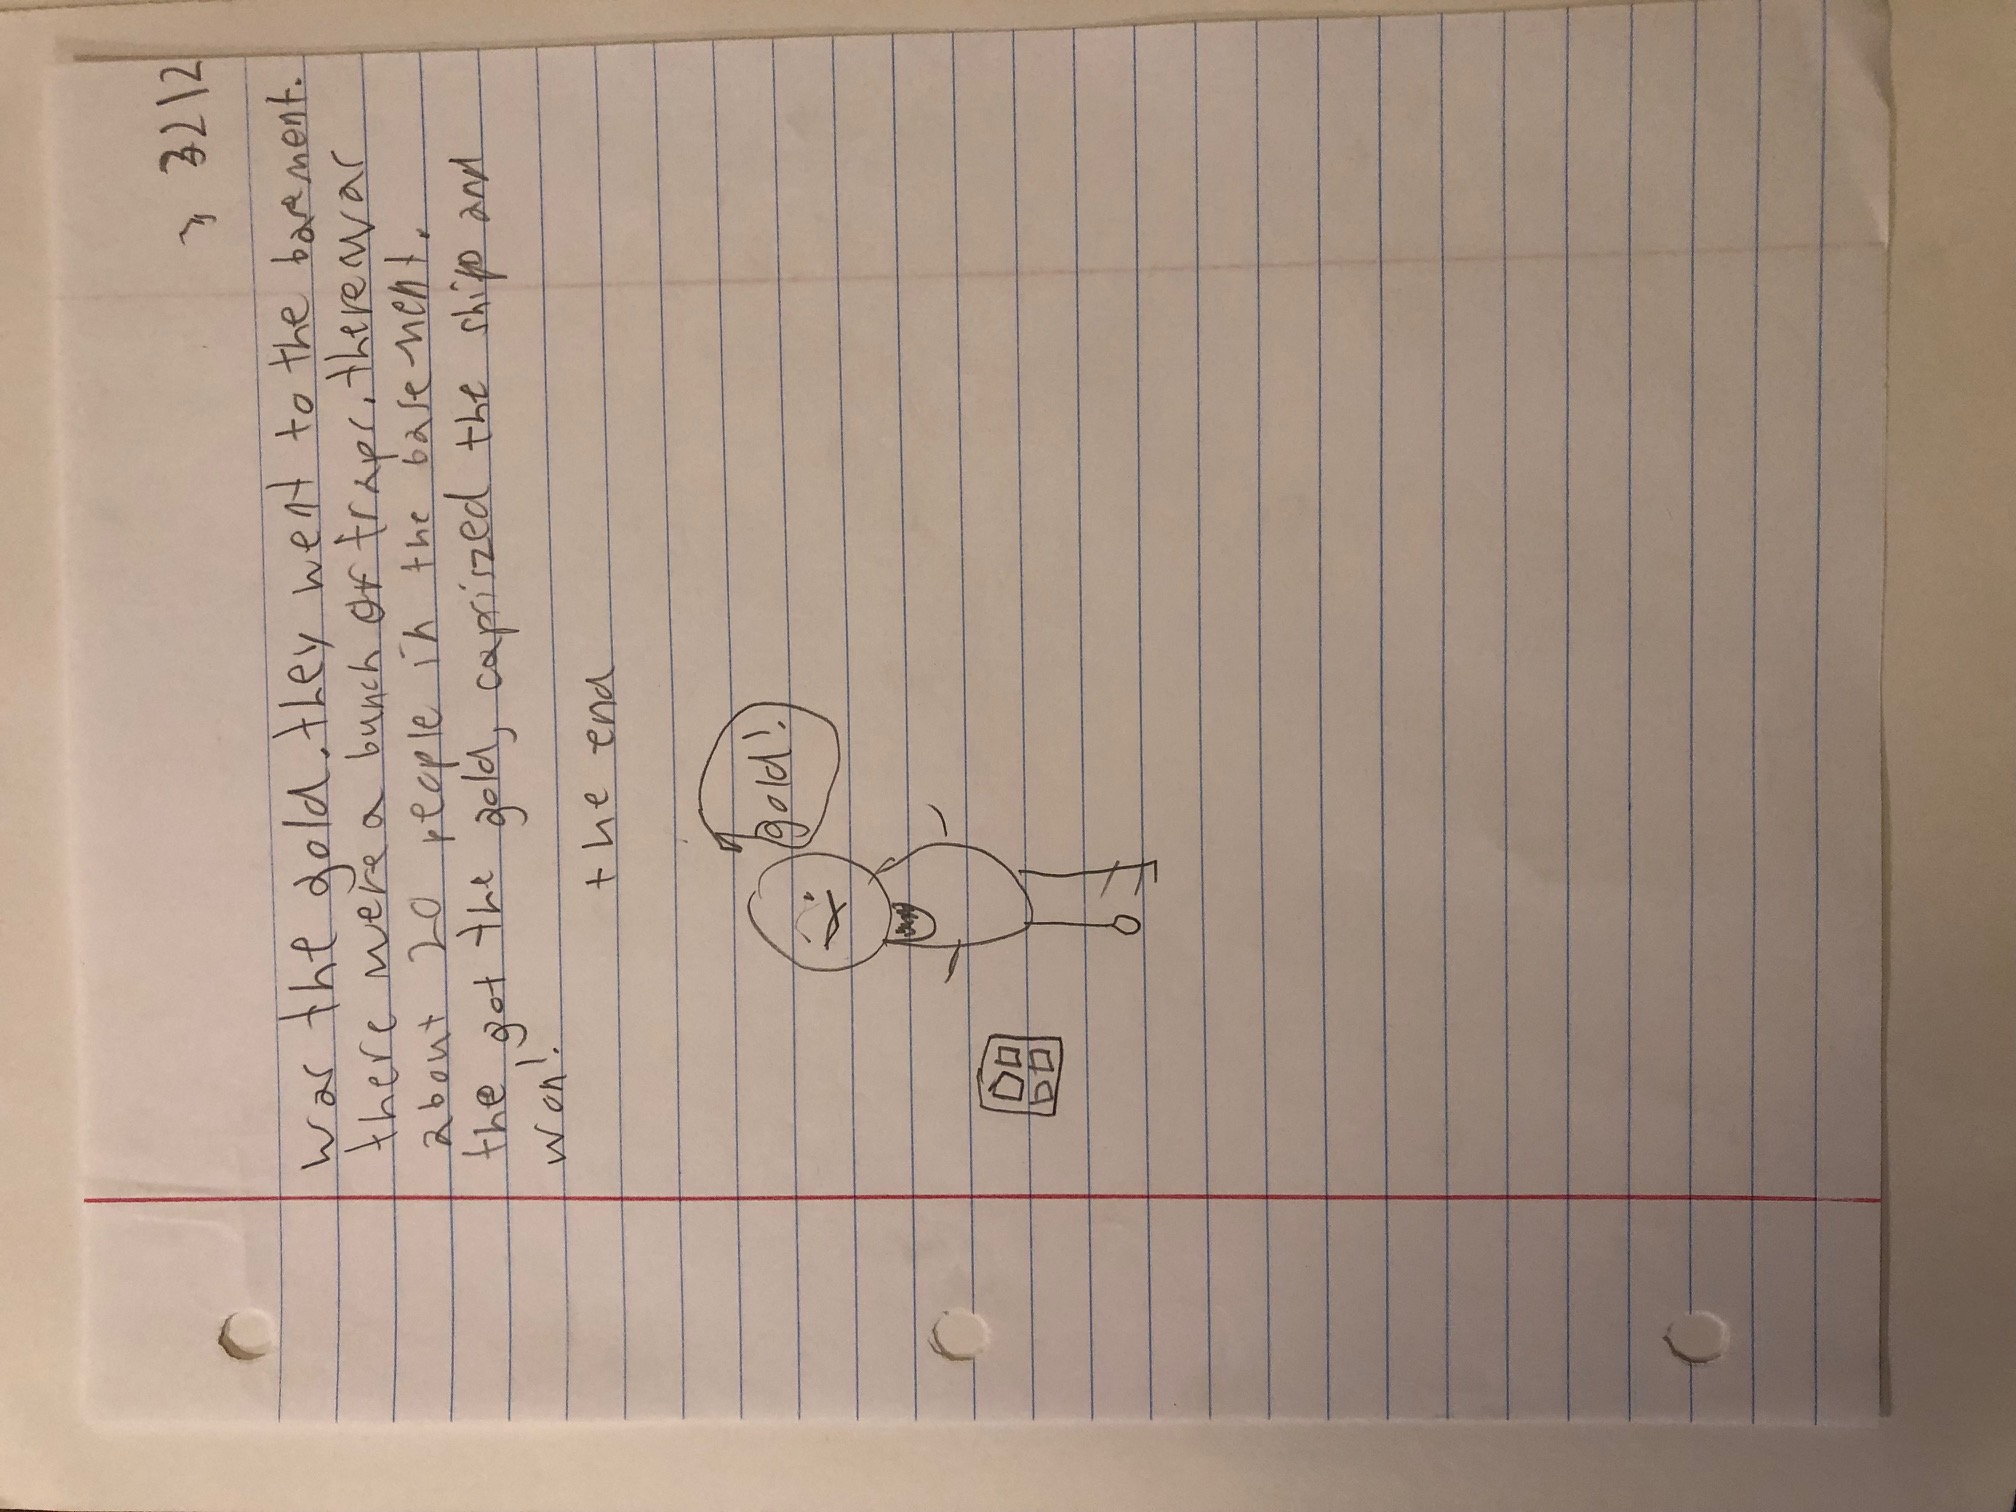 3212
was the gold. they went to the basement.
there were a bunch of traps. there was
about 20 people in the basement.
the got the gold, capriszed the ship and
won!
the end
gold!